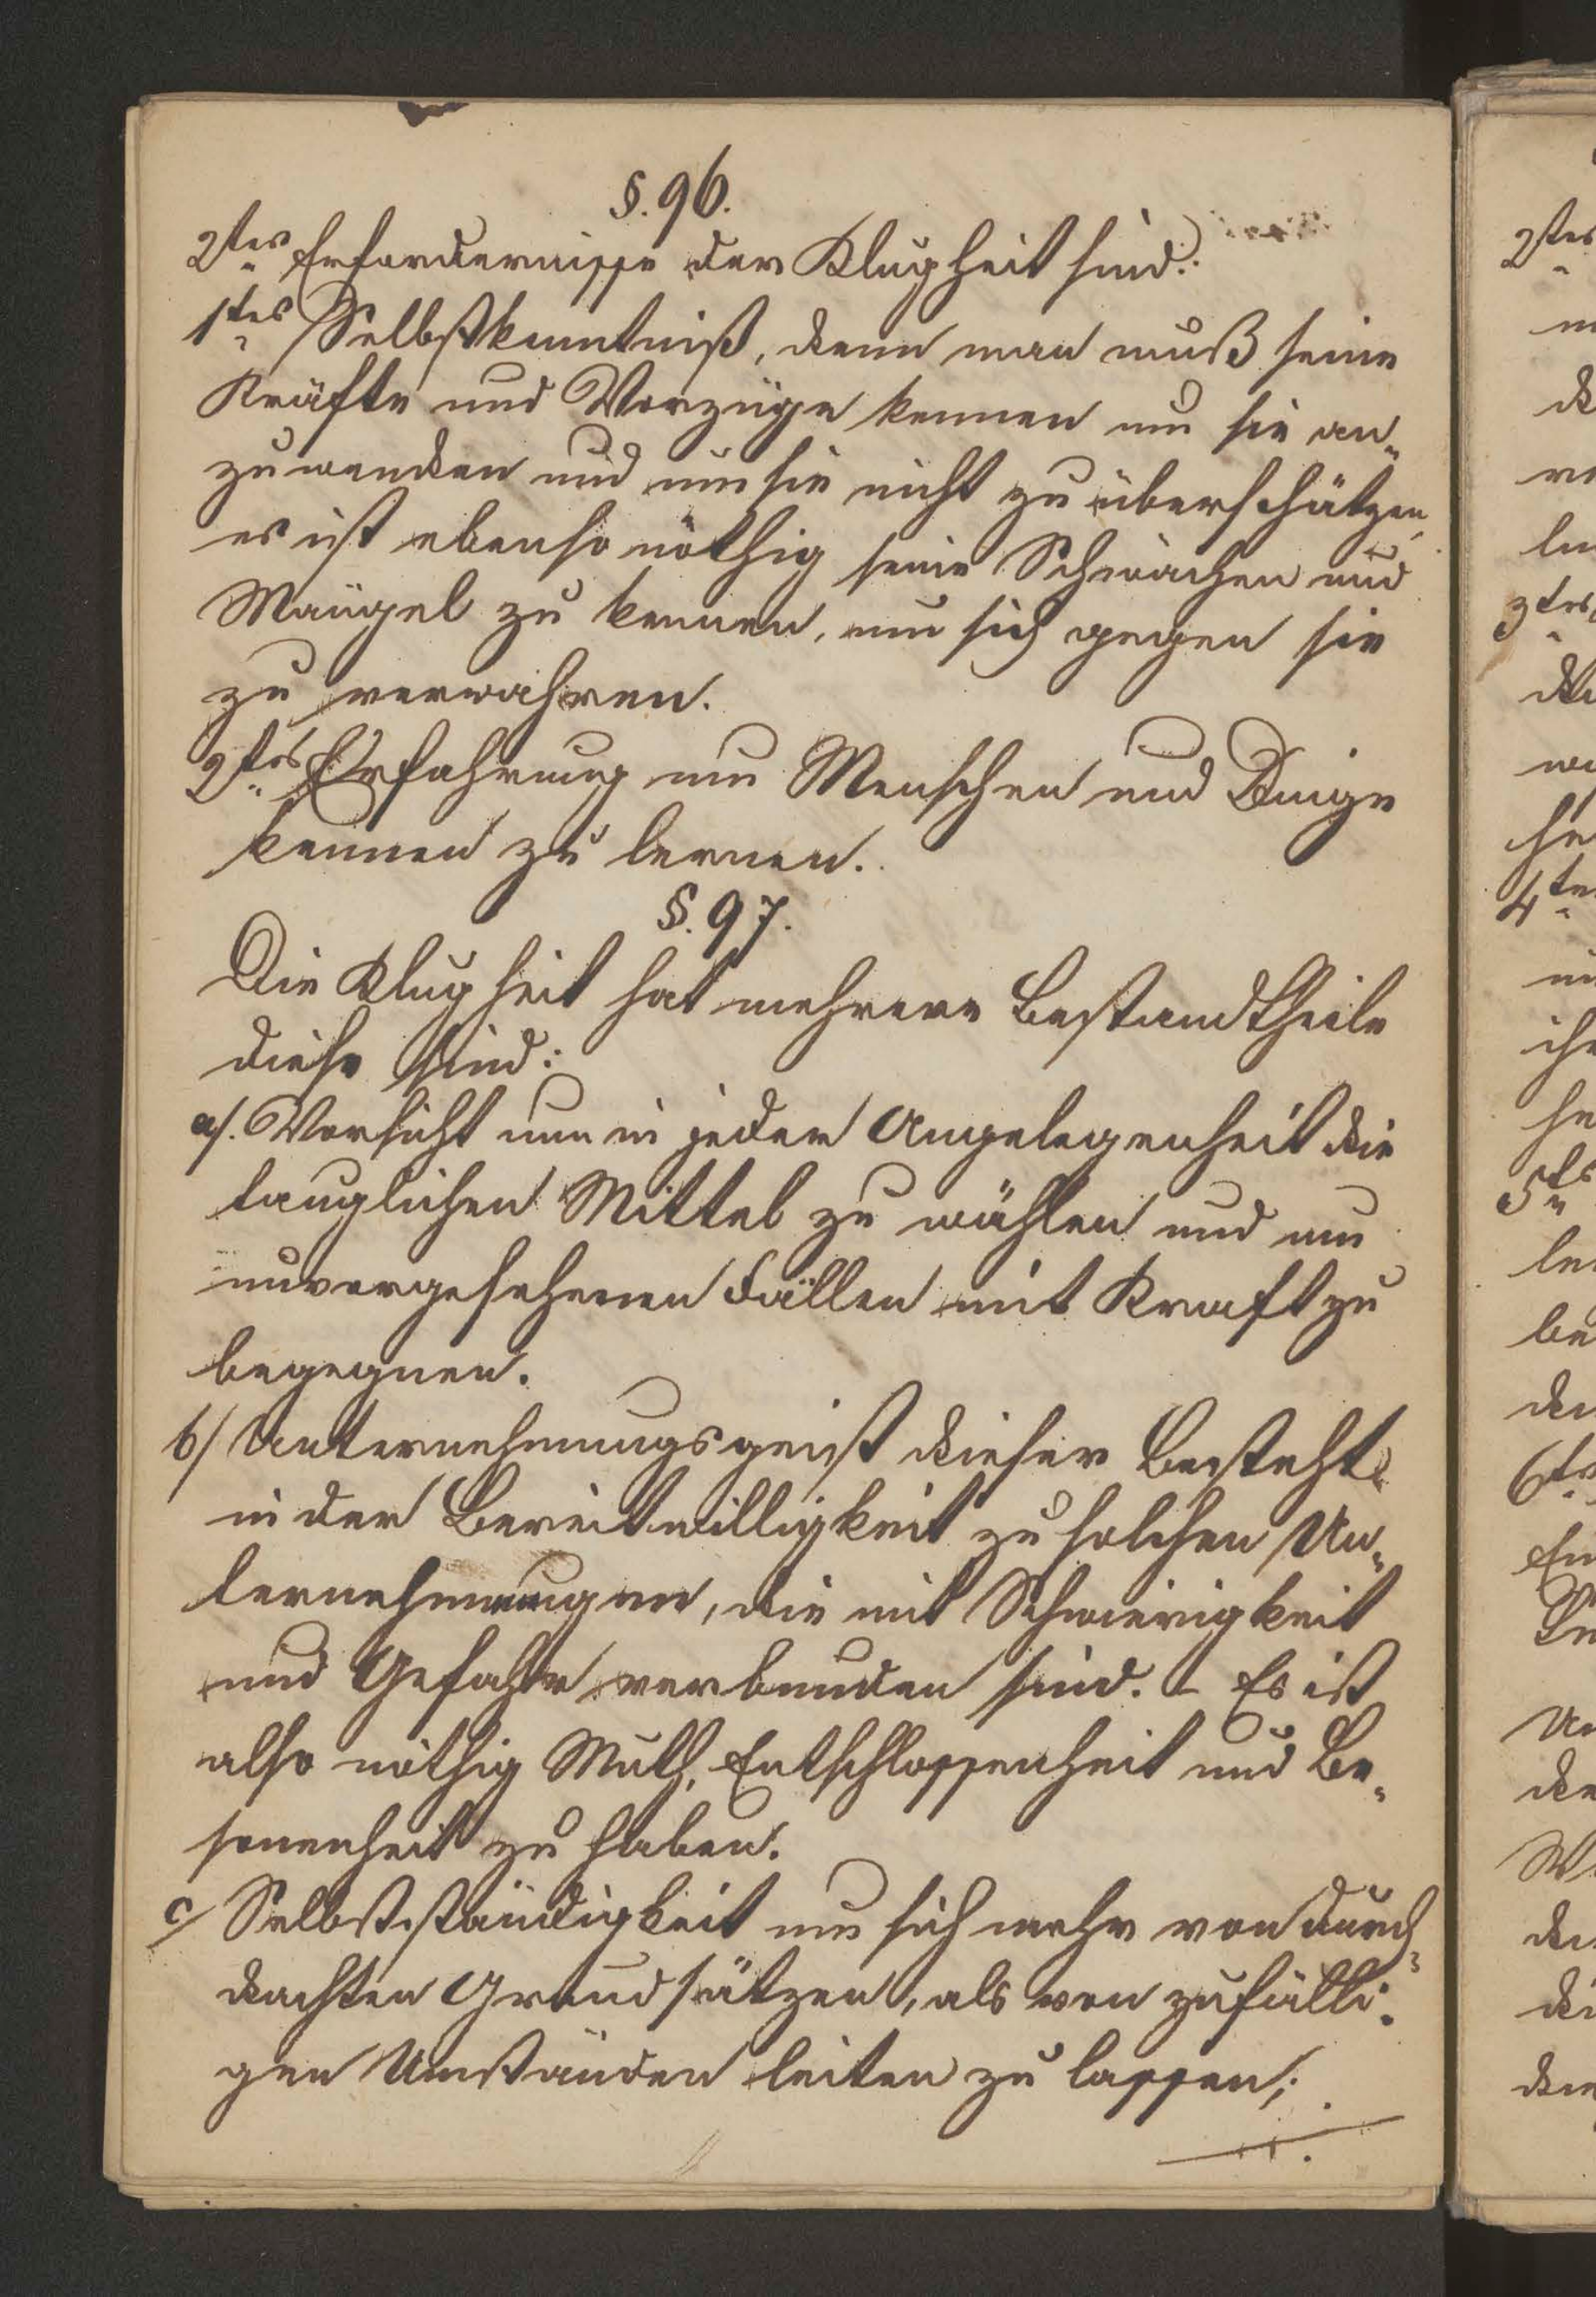 §. 96.
2tes Erfordernisse der Klugheit sind:
1tes Selbstkenntniß, denn man muß seine
Kräfte und Vorzüge kennen um sie an-
zuwenden und um sie nicht zu überschätzen,
es ist ebenso nöthig seine Schwächen und
Mängel zu kennen, um sich gegen sie
zu verwahren.
2tes Erfahrung um Menschen und Dinge
kennen zu lernen.
§. 97.
Die Klugheit hat mehrere Bestandtheile
diese sind:
a/. Vorsicht um in jeder Angelegenheit die
tauglichen Mittel zu wählen und um
unvorgesehenen Fällen mit Kraft zu
begegnen.
b/ Unternehmungsgeist dieser besteht
in der Bereitwilligkeit zu solchen Un-
ternehmungen, die mit Schwierigkeit
und Gefahr verbunden sind. – Es ist
also nöthig Muth, Entschlossenheit und Be-
sonenheit zu haben.
c/ Selbstständigkeit um sich mehr von durch-
dachten Grundsätzen, als von zufälli-
gen Umständen leiten zu lassen;
2tes
3tes
4te
5ts